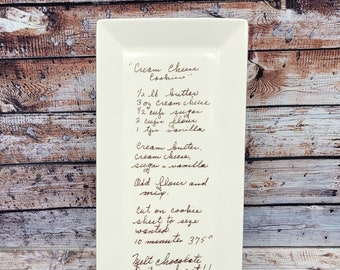 "Cream Cheese
Cookies"
1/2 lb butter
3 oz cream cheese
1/2 cup sugar
2 cups flour
1 tsp vanilla
Cream butter,
cream cheese,
sugar + vanilla
Add flour and
mix.
Cut on cookie
sheet to size
wanted
10 minutes 375°
Melt chocolate